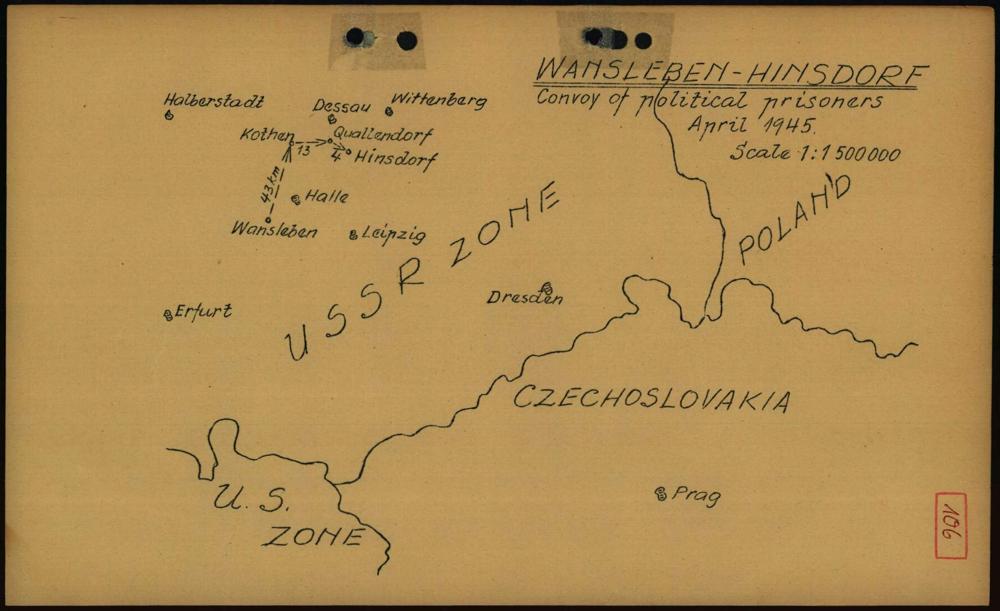 WANSLEBEN-HINSDORF
Convoy of political prisoners
April 1945.
Scale 1:1 500 000
Halberstadt
Dessau
Wittenberg
Kothen
13
Quallendorf
4
Hinsdorf
43 km
Halle
Wansleben
Leipzig
USSR ZONE
POLAND
Dresden
Erfurt
CZECHOSLOVAKIA
U.S.
ZONE
Prag
106